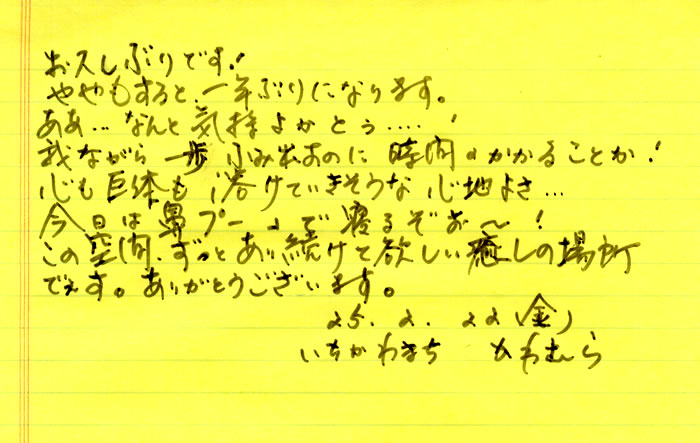 お久しぶりです!
ややもすると、一年ぶりになります。
ああ…なんと気持よかとう……!
我ながら一歩ふみ出すのに時間のかかることか!
心も巨体も溶けていきそうな心地よさ…
今日は鼻プー〜で寝るぞお〜!
この空間、ずっとあり続けて欲しい癒しの場所
でえす。ありがとうございます。
25.2.22(金)
いちかわまち ひわむら